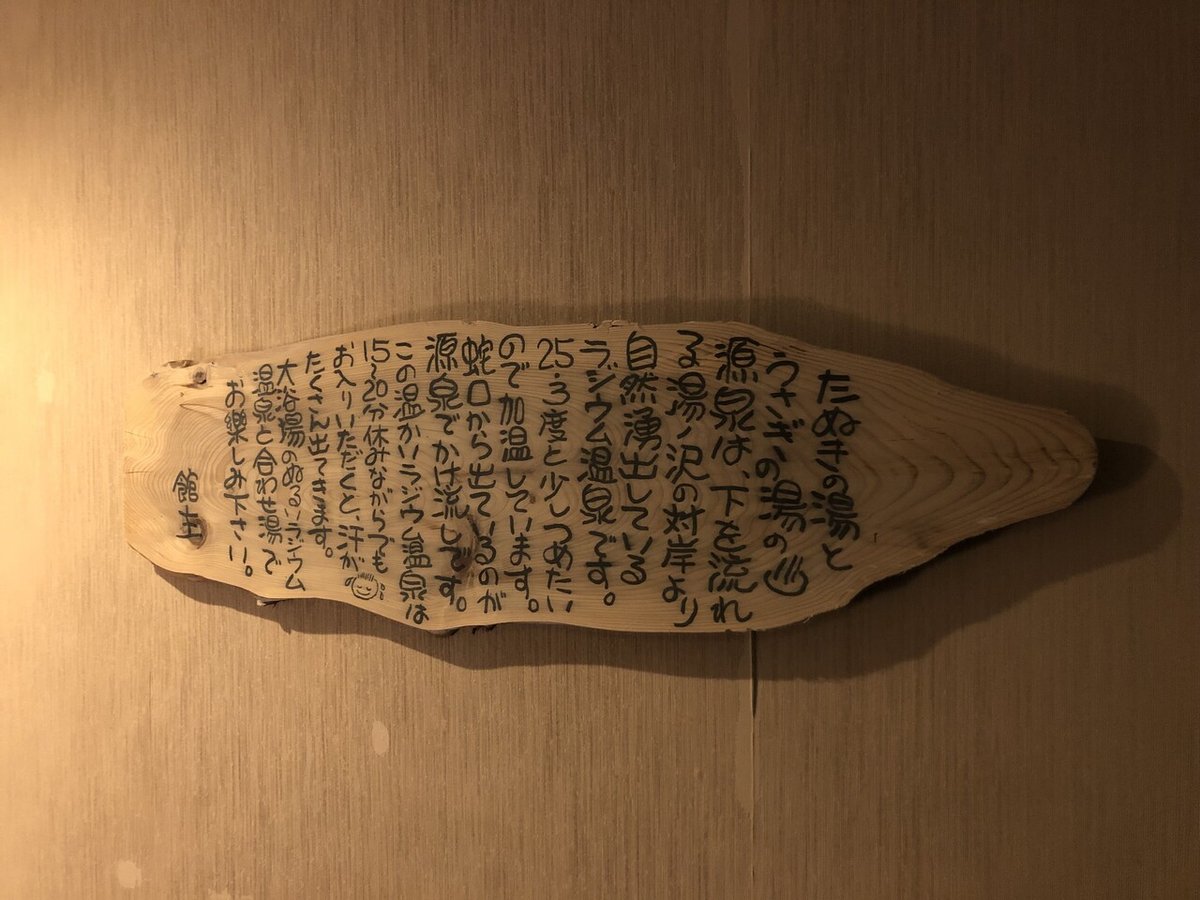 たぬきの湯と
うさぎの湯の♨
源泉は、下を流れ
る湯ノ沢の対岸より
自然湧出している
ラジウム温泉です。
25.3度と少しつめたい
ので加温しています。
蛇口から出ているのが
源泉でかけ流しです。
この温かいラジウム温泉は
15~20分休みながらでも
お入りいただくと、汗が
たくさん出てきます。
大浴場のぬるいラジウム
温泉と合わせ湯で
お楽しみ下さい。
館主